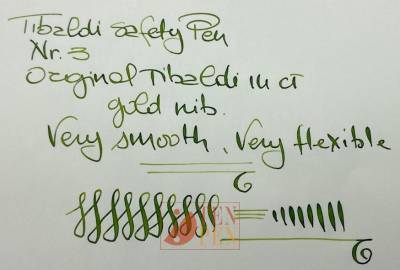 Tibaldi Safety Pen
Nr. 3
Original Tibaldi 14 ct
gold nib.
Very smooth, Very flexible
PEN
PEN